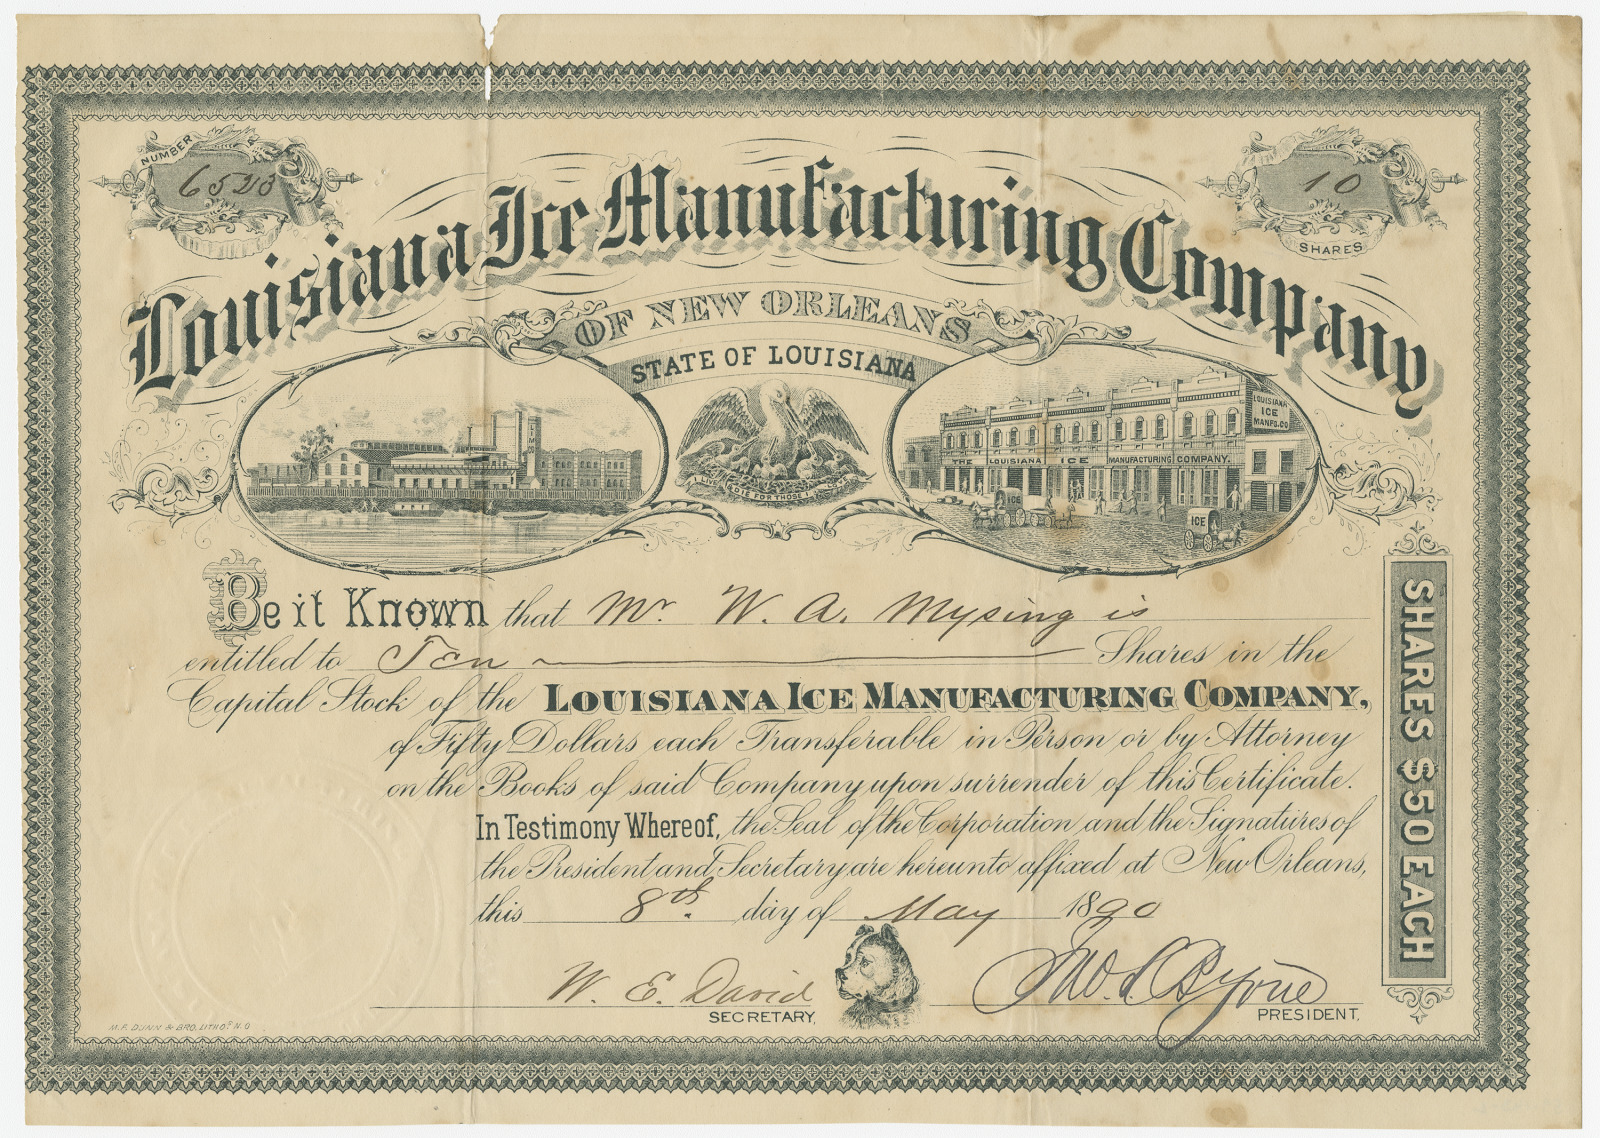 NUMBER
6523
10
SHARES
Louisiana Ice Manufacturing Company
OF NEW ORLEANS
STATE OF LOUISIANA
LOUISIANA
ICE
MANFG. CO
THE LOUISIANA ICE MANUFACTURING COMPANY.
I LIVE & DIE FOR THOSE I LOVE
ICE
ICE
Be it Known that Mr. W. A. Mysing is
entitled to Ten Shares in the
Capital Stock of the LOUISIANA ICE MANUFACTURING COMPANY,
of Fifty Dollars each Transferable in Person or by Attorney
on the Books of said Company upon surrender of this Certificate.
In Testimony Whereof, the Seal of the Corporation and the Signatures of
the President and Secretary are hereunto affixed at New Orleans,
this 8th. day of May 1890
W. E. David
SECRETARY,
Jno. S. Byrne
PRESIDENT.
SHARES $50 EACH
M.F. DUNN & BRO. LITHO. N.O.